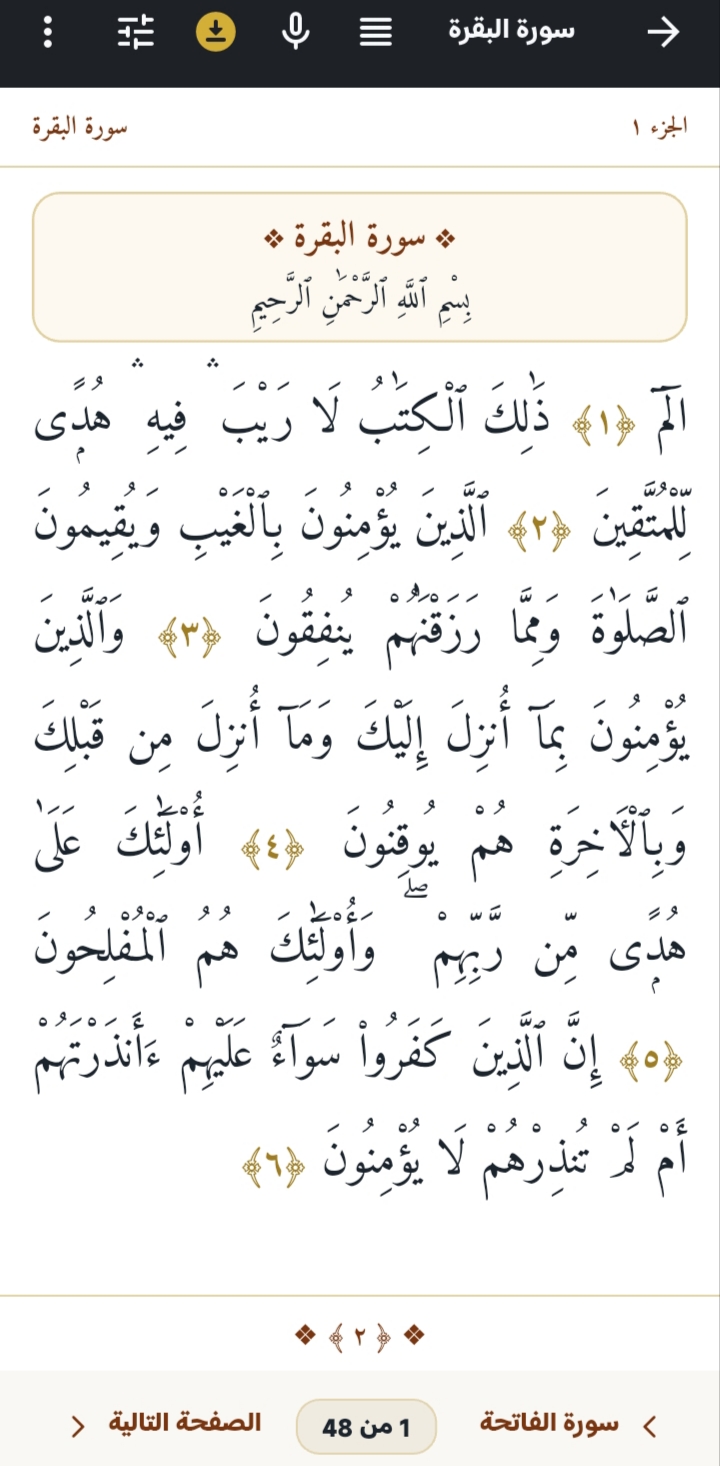 سورة البقرة
الجزء ١
سورة البقرة
❖ سورة البقرة ❖
بِسْمِ ٱللَّهِ ٱلرَّحْمَٰنِ ٱلرَّحِيمِ
الٓمٓ ﴿١﴾ ذَٰلِكَ ٱلْكِتَٰبُ لَا رَيْبَ ۛ فِيهِ ۛ هُدًۭى
لِّلْمُتَّقِينَ ﴿٢﴾ ٱلَّذِينَ يُؤْمِنُونَ بِٱلْغَيْبِ وَيُقِيمُونَ
ٱلصَّلَوٰةَ وَمِمَّا رَزَقْنَٰهُمْ يُنفِقُونَ ﴿٣﴾ وَٱلَّذِينَ
يُؤْمِنُونَ بِمَآ أُنزِلَ إِلَيْكَ وَمَآ أُنزِلَ مِن قَبْلِكَ
وَبِٱلْءَاخِرَةِ هُمْ يُوقِنُونَ ﴿٤﴾ أُو۟لَٰٓئِكَ عَلَىٰ
هُدًۭى مِّن رَّبِّهِمْ ۖ وَأُو۟لَٰٓئِكَ هُمُ ٱلْمُفْلِحُونَ
﴿٥﴾ إِنَّ ٱلَّذِينَ كَفَرُوا۟ سَوَآءٌ عَلَيْهِمْ ءَأَنذَرْتَهُمْ
أَمْ لَمْ تُنذِرْهُمْ لَا يُؤْمِنُونَ ﴿٦﴾
❖ ﴿ ٢ ﴾ ❖
سورة الفاتحة
1 من 48
الصفحة التالية